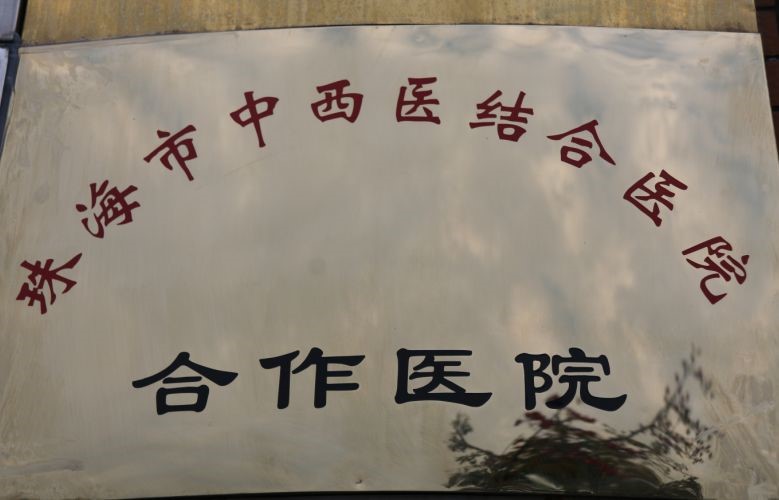 珠海市中西医结合医院
合作医院